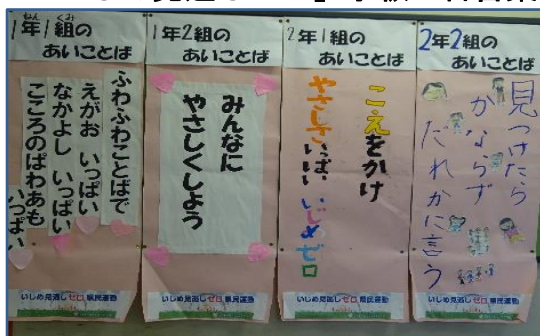 1年1組の
あいことば
ふわふわことばで
えがお いっぱい
なかよし いっぱい
こころのぱわあも
いっぱい
いじめ見逃しゼロ県民運動
1年2組の
あいことば
みんなに
やさしくしよう
いじめ見逃しゼロ県民運動
2年1組の
あいことば
こえをかけ
やさしさいっぱい いじめゼロ
いじめ見逃しゼロ県民運動
2年2組の
あいことば
見つけたら
かならず
だれかに言う
いじめ見逃しゼロ県民運動